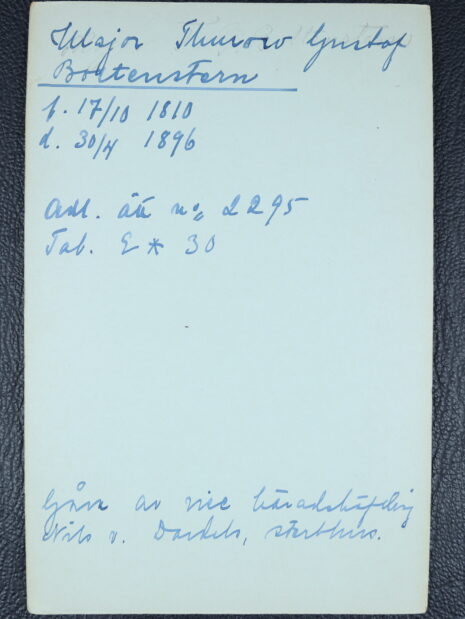 Major Thurow Gustaf
Boltenstern
f. 17/10 1810
d. 30/4 1896
Adl. ätt no 2295
Tab. E * 30
Gåva av vice häradshöfding
Nils v. Dardels, sterbhus.